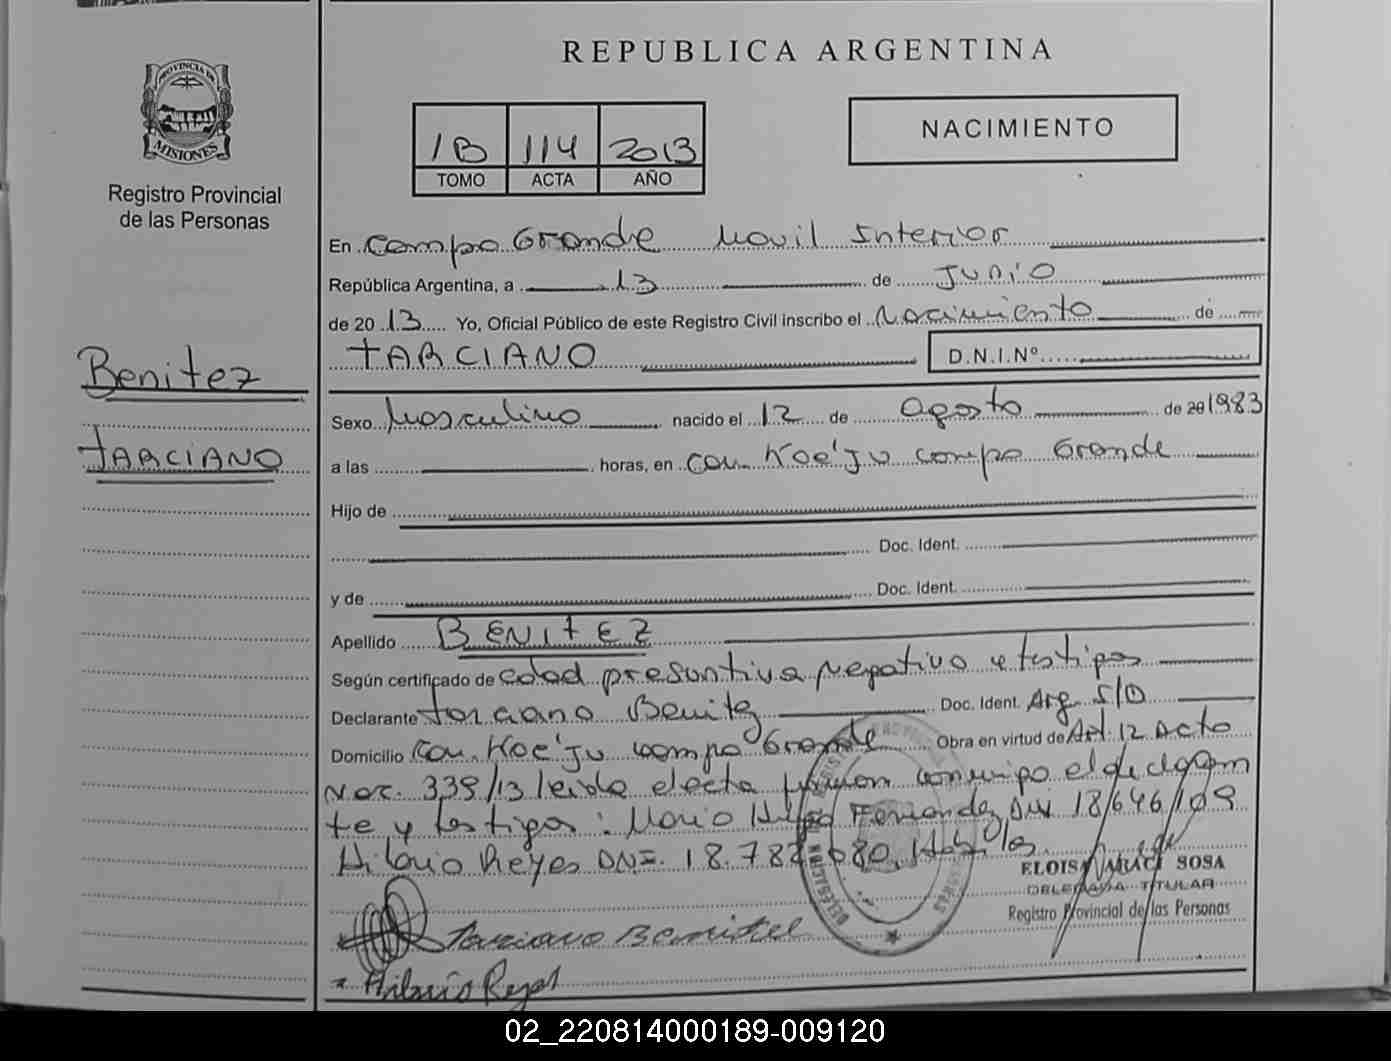 REPUBLICA ARGENTINA
PROVINCIA DE
MISIONES
Registro Provincial
de las Personas
1B 114 2013
TOMO ACTA AÑO
NACIMIENTO
En Campo Grande Movil Interior
República Argentina, a 13 de Junio
de 2013 Yo, Oficial Público de este Registro Civil inscribo el Nacimiento de
TARCIANO D.N.I.Nº
Benitez
TARCIANO
Sexo Masculino nacido el 12 de agosto de 201983
a las horas, en Com. Koe'Ju campo Grande
Hijo de
Doc. Ident.
y de Doc. Ident.
Apellido BENITEZ
Según certificado de edad presuntiva negativo y testigos
Declarante Tarciano Benitez Doc. Ident. Arg. S/D
Domicilio Com. Koe'Ju campo Grande Obra en virtud de Art. 12 Acta
Nac. 339/13 leida el acta firman conmigo el
te y testigos: Mario Hugo Fernandez DNI 18/646/109
Hilario Reyes DNI. 18.782.680, Habiles
ELOISA SOSA
DELEGADA TITULAR
Registro Provincial de las Personas
Tarciano Benitez
Hilario Reyes
02_220814000189-009120